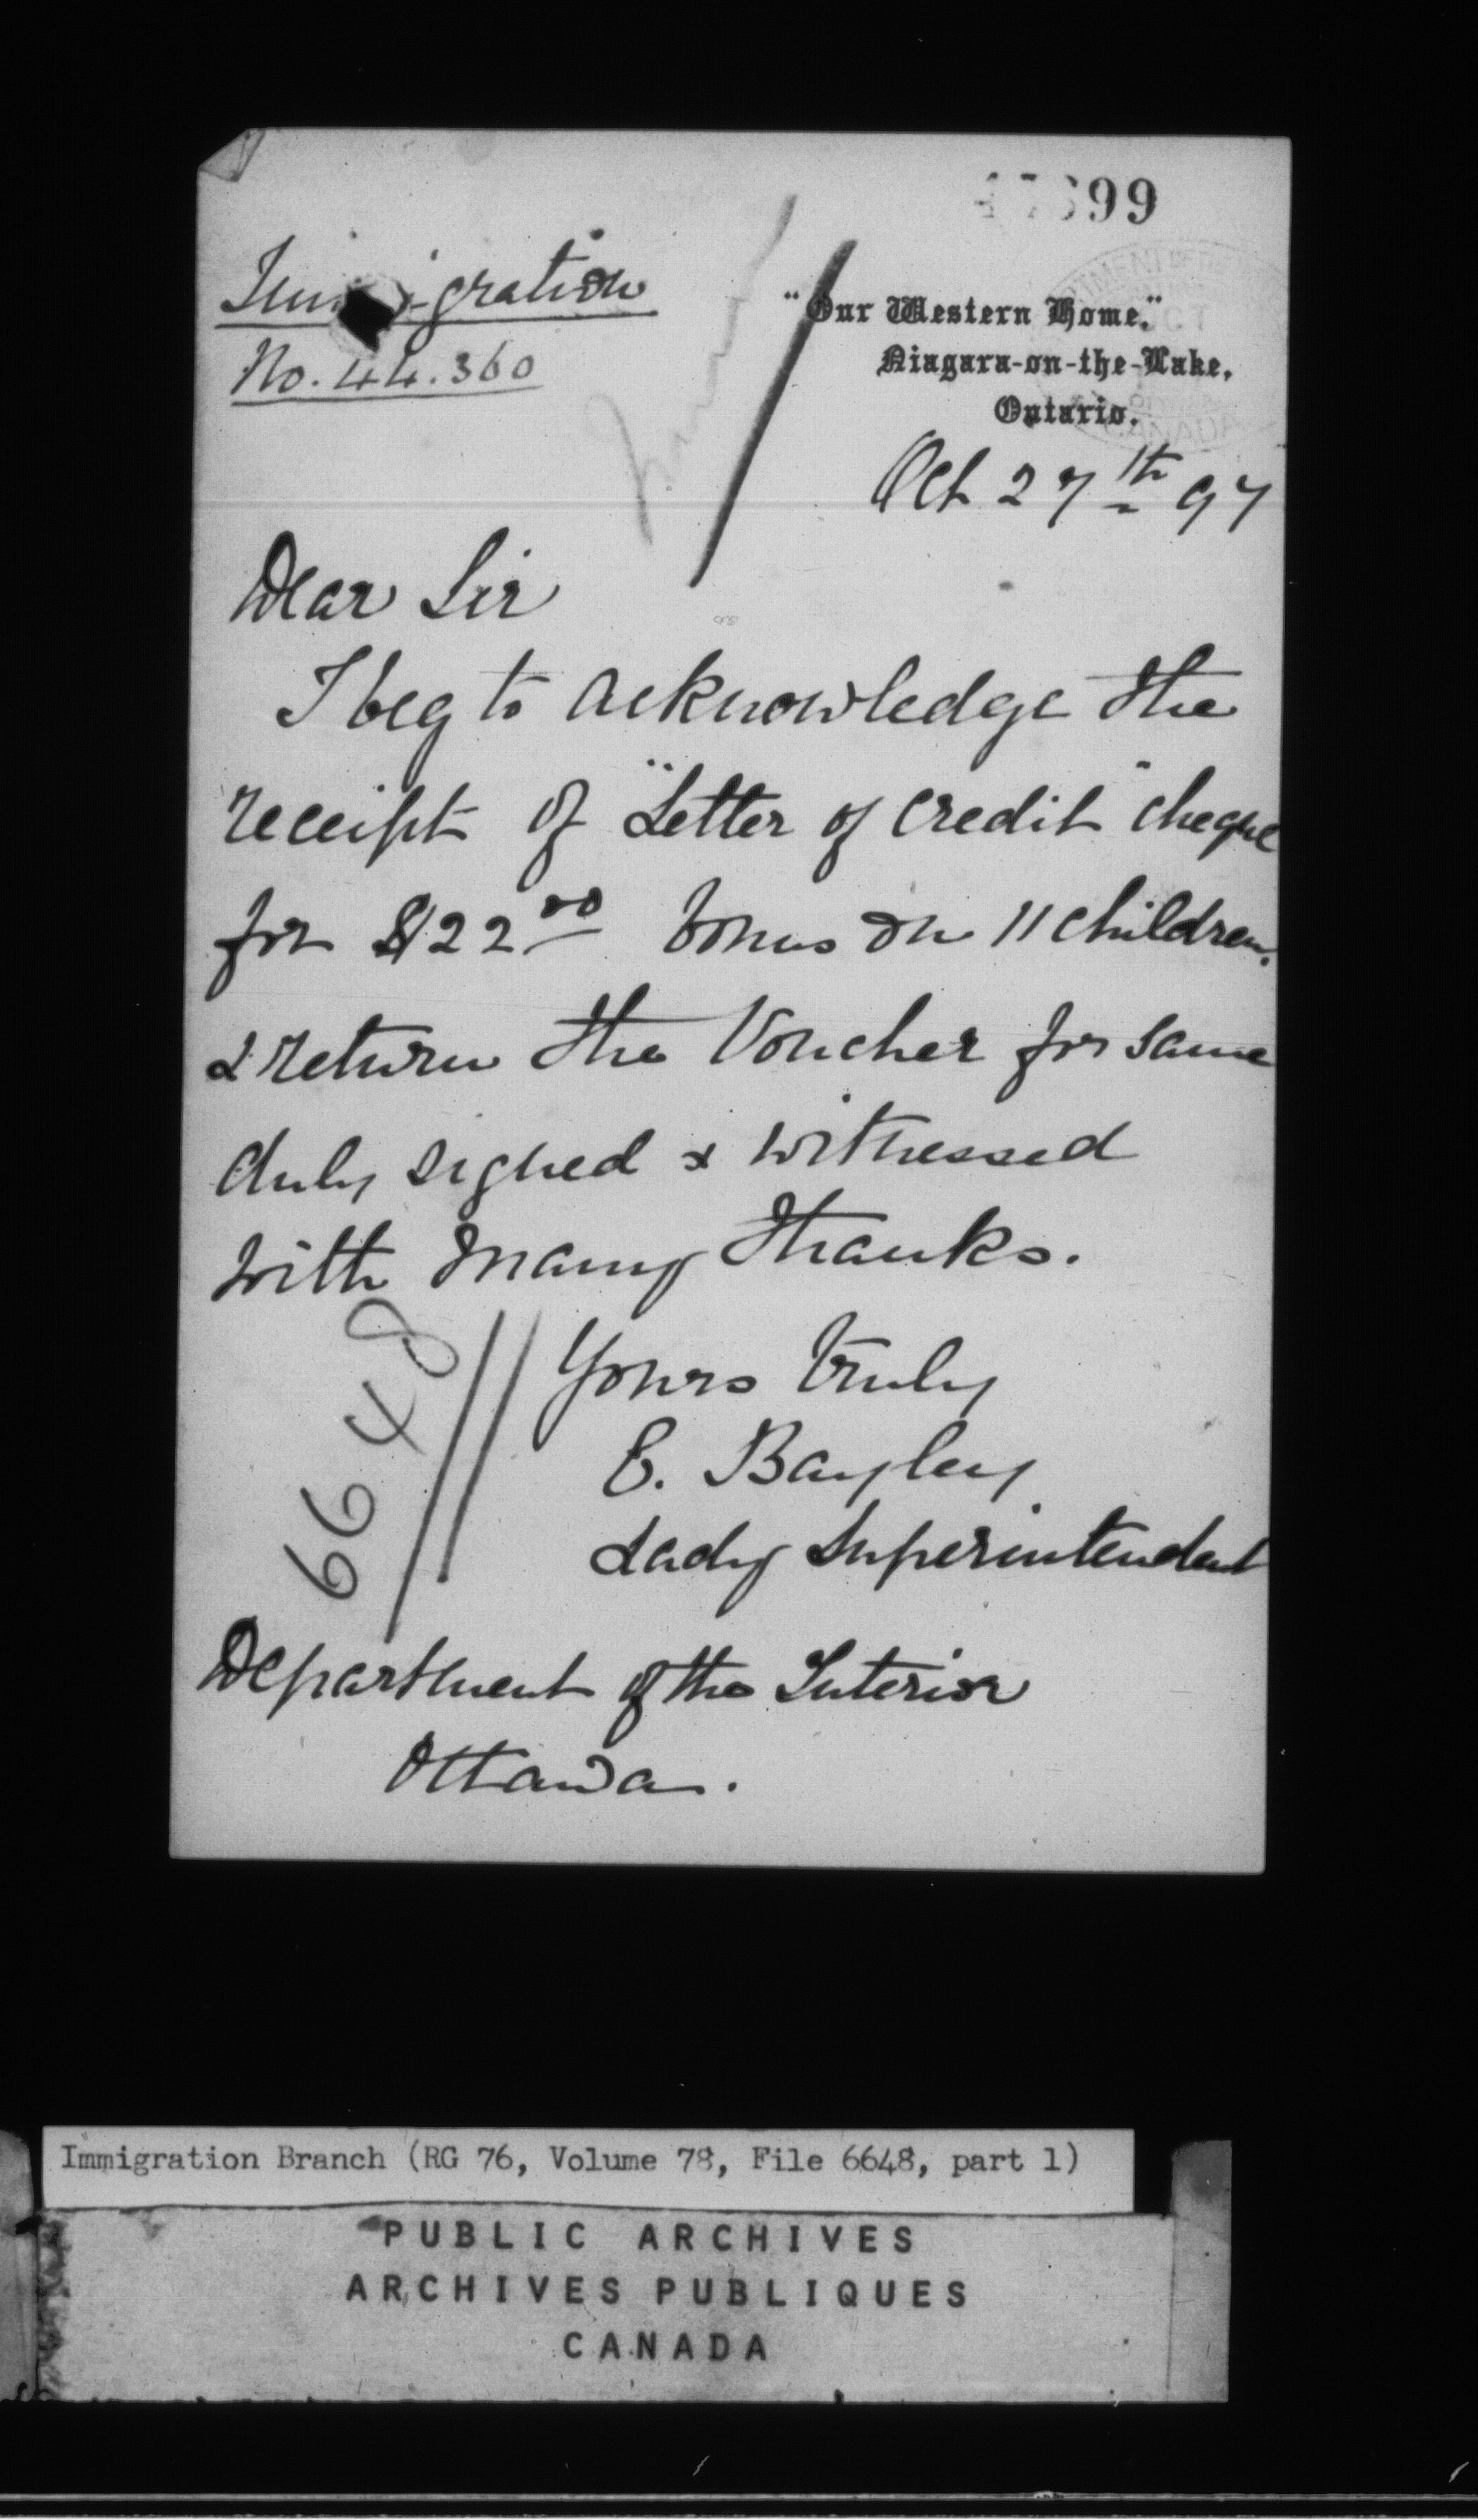 99
Immigration
No. 44.360
"Our Western Home,"
Niagara-on-the-Lake,
Ontario.
CANADA
Oct 27th 97
Dear Sir
I beg to acknowledge the
receipt of "Letter of Credit" cheque
for $22.00 bonus on 11 children.
& return the Voucher for same
duly signed & witnessed
with many thanks.
Yours truly
E. Bayley
Lady Superintendent
6648
Department of the Interior
Ottawa.
Immigration Branch (RG 76, Volume 78, File 6648, part 1)
PUBLIC ARCHIVES
ARCHIVES PUBLIQUES
CANADA